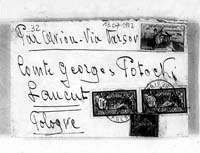 Par avion - Via Varsov
Comte Georges Potocki
Lancut
Pologne